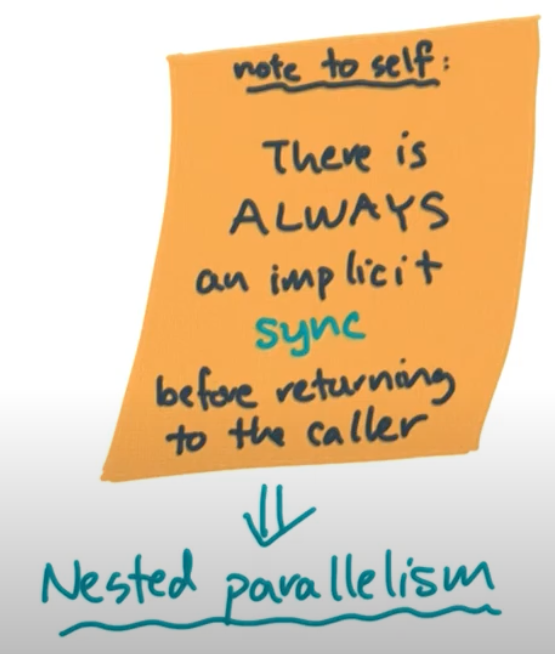 note to self:
There is
ALWAYS
an implicit
sync
before returning
to the caller
Nested parallelism